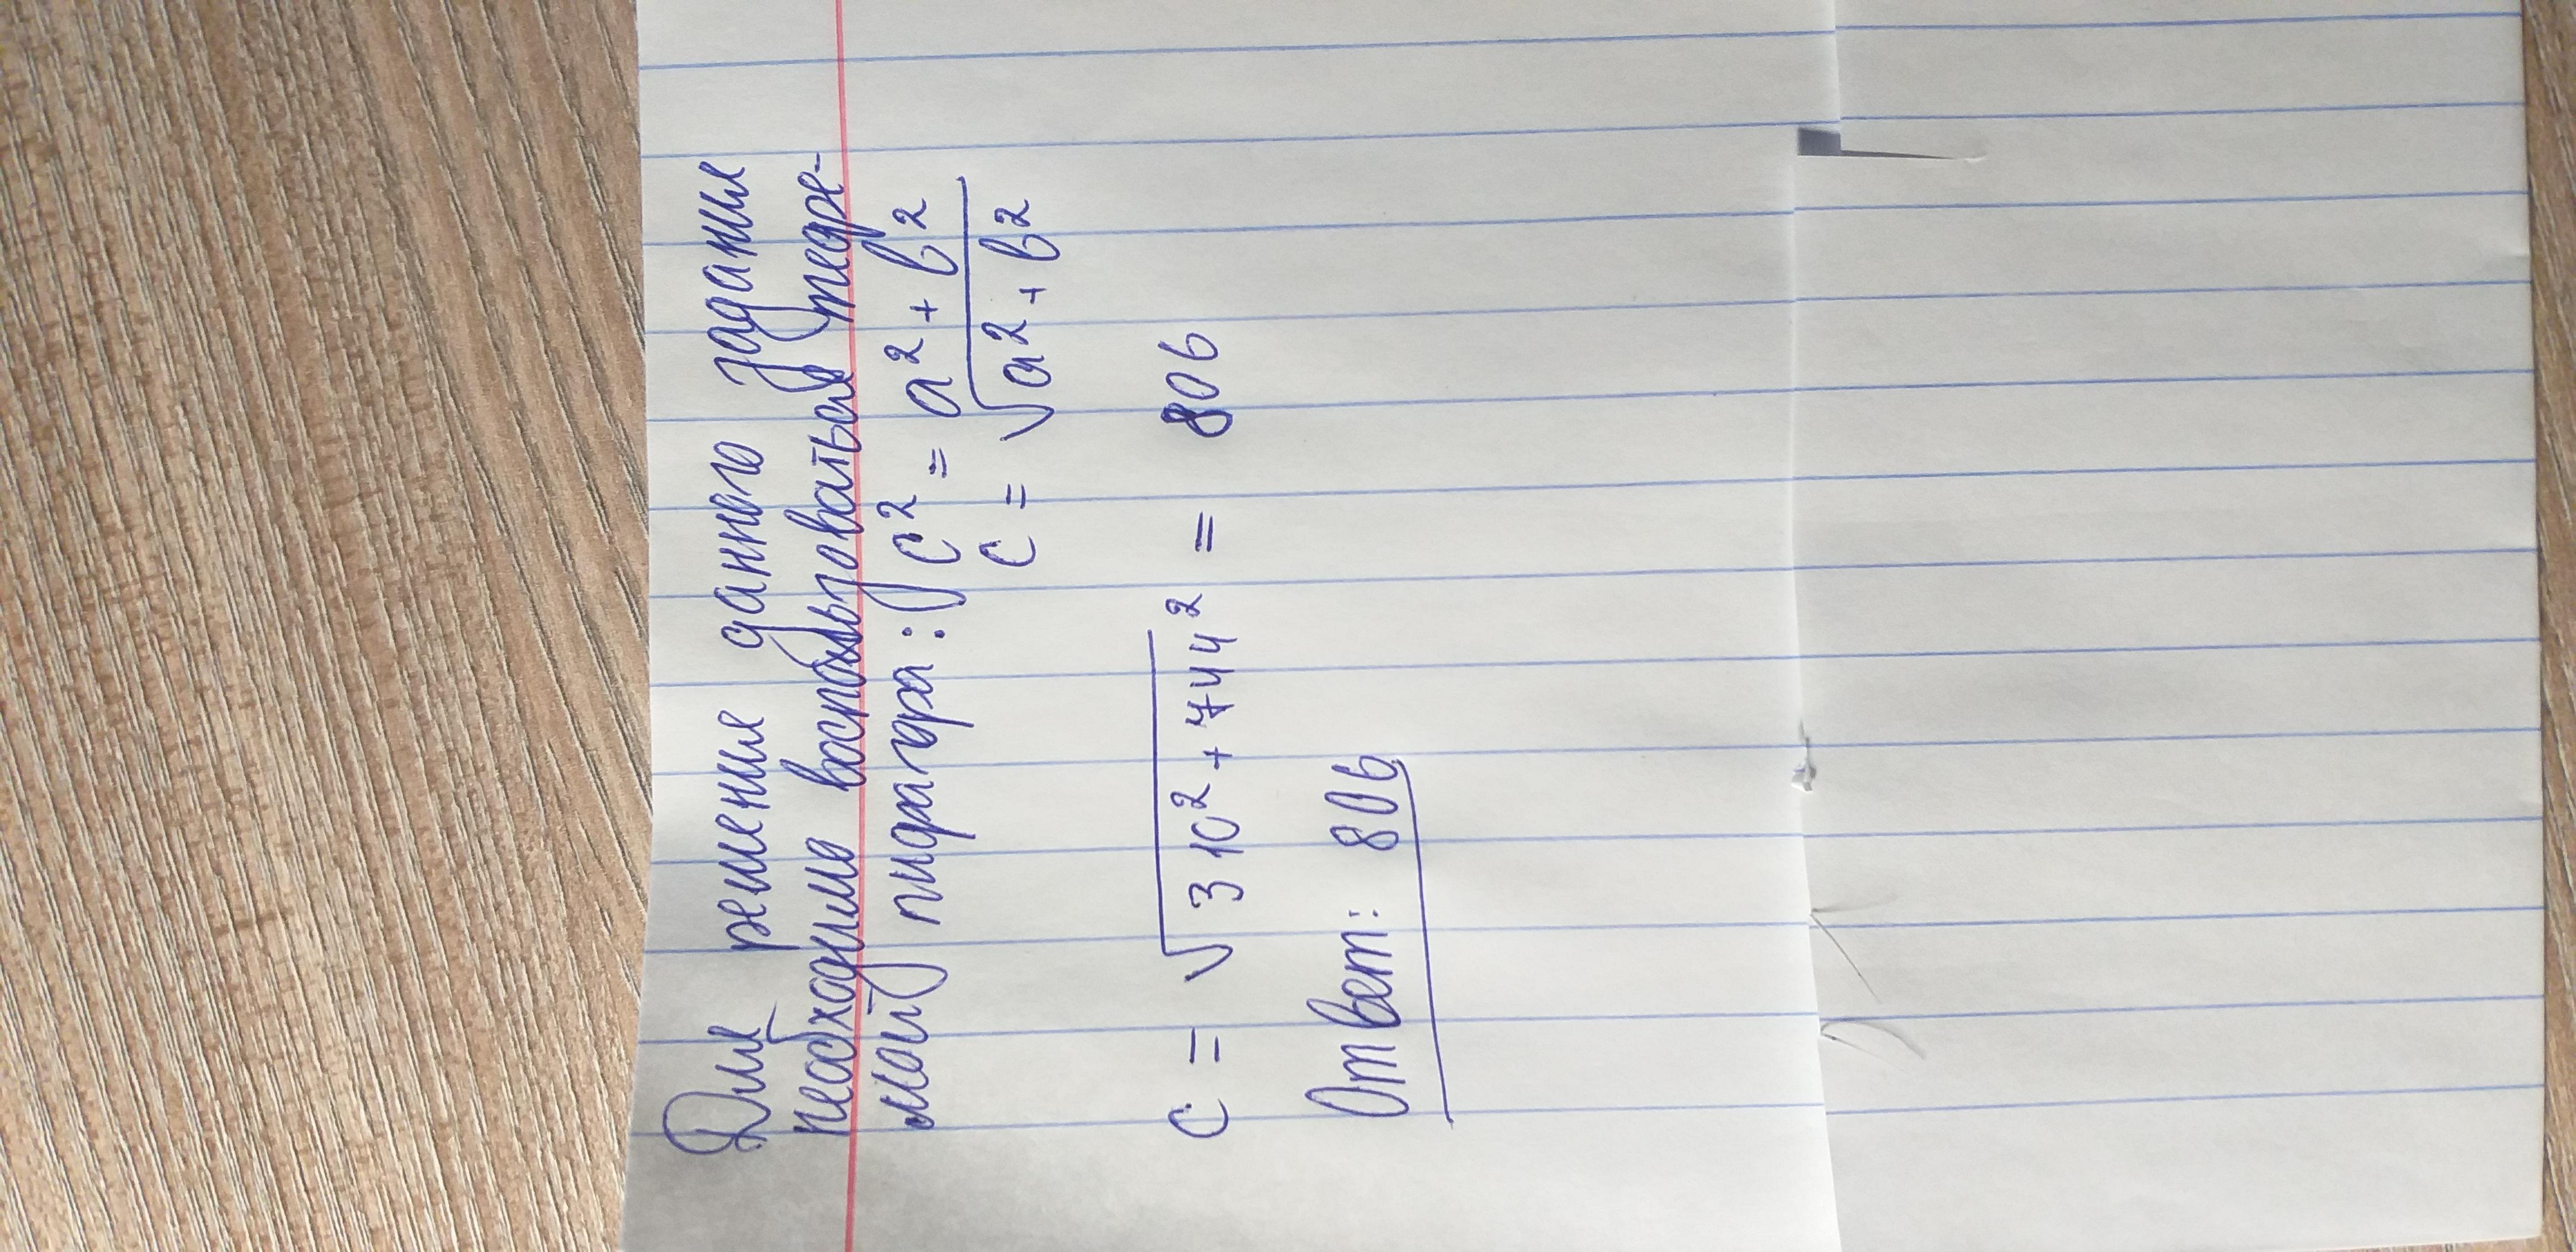 Для решения данного задания
необходимо воспользоваться теоре-
мой пифагора: c² = a² + b²
c = √a² + b²
c = √310² + 744² = 806
Ответ: 806